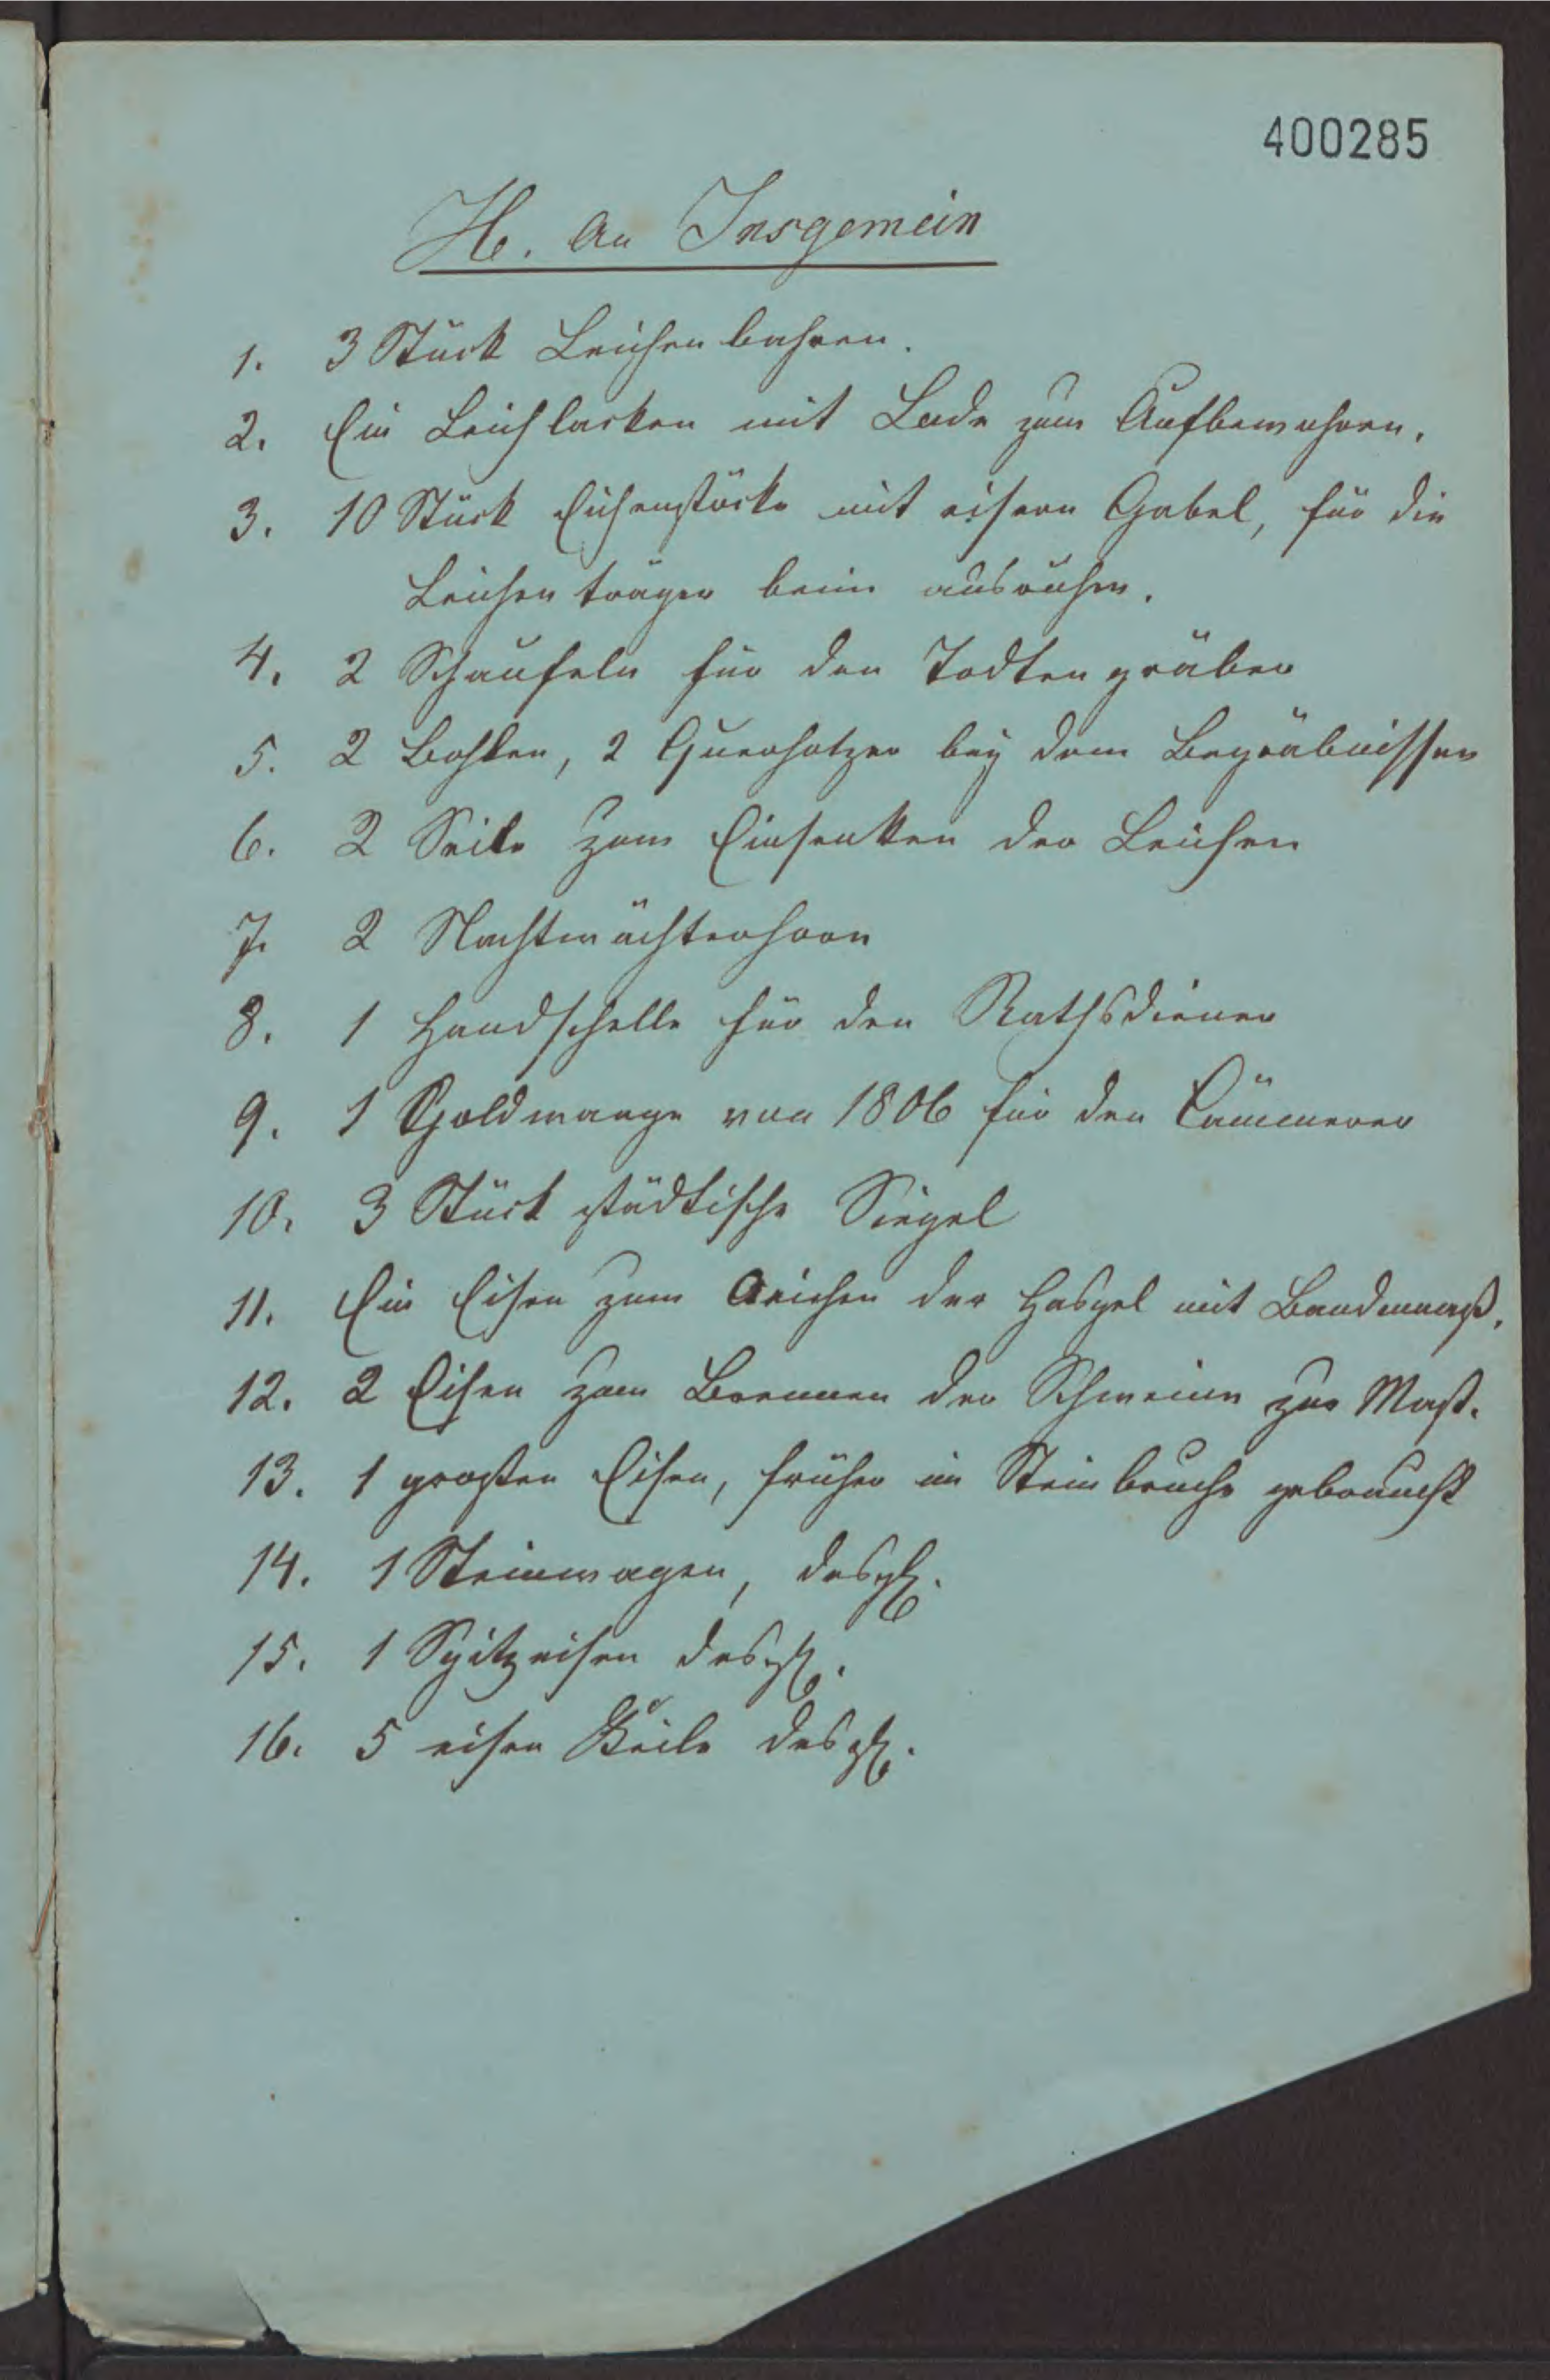 400285
H. An Insgemein
1. 3 Stück Leichenbahren.
2. Ein Leichlacken mit Lade zum Aufbewahren.
3. 10 Stück Eichenstöcke mit eisern Gabel, für die
Leichenträger beim ausruhen.
4. 2 Schaufeln für den Todtengräber
5. 2 Bohlen, 2 Querholzer bey dem Begräbnissen
6. 2 Seile zum Einsenken der Leichen
7. 2 Nachtwächterhorn
8. 1 Handschelle für den Rathsdiener
9. 1 Goldwaage von 1806 für den Cämmerer
10. 3 Stück städtische Siegel
11. Ein Eisen zum Aeichen der Haspel mit Bandmaaß.
12. 2 Eisen zum Brennen der Schweine zur Mast.
13. 1 großen Eisen, früher im Steinbruche gebraucht
14. 1 Steinwagen, desgl.
15. 1 Spitzeisen desgl.
16. 5 eisen Keile desgl.